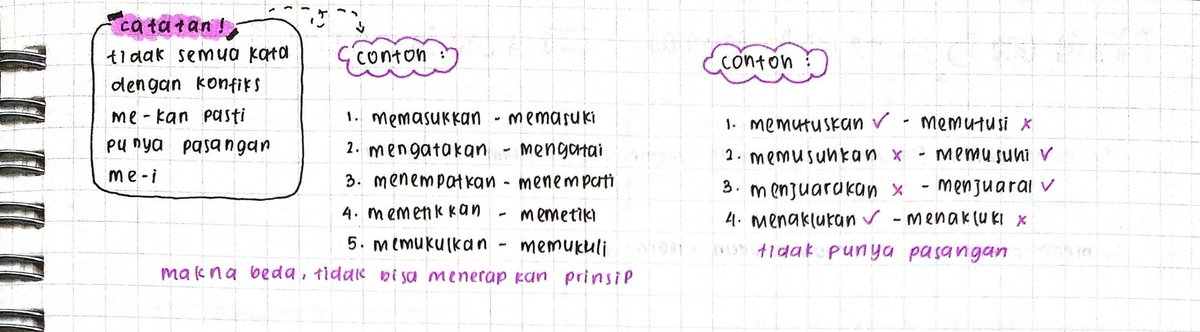 catatan!
tidak semua kata
dengan konfiks
me-kan pasti
punya pasangan
me-i
contoh :
1. memasukkan - memasuki
2. mengatakan - mengatai
3. menempatkan - menempati
4. memetikkan - memetiki
5. memukulkan - memukuli
makna beda, tidak bisa menerapkan prinsip
contoh :
1. memutuskan ✓ - memutusi ×
2. memusuhkan × - memusuhi ✓
3. menjuarakan × - menjuarai ✓
4. menaklukan ✓ - menakluki ×
tidak punya pasangan